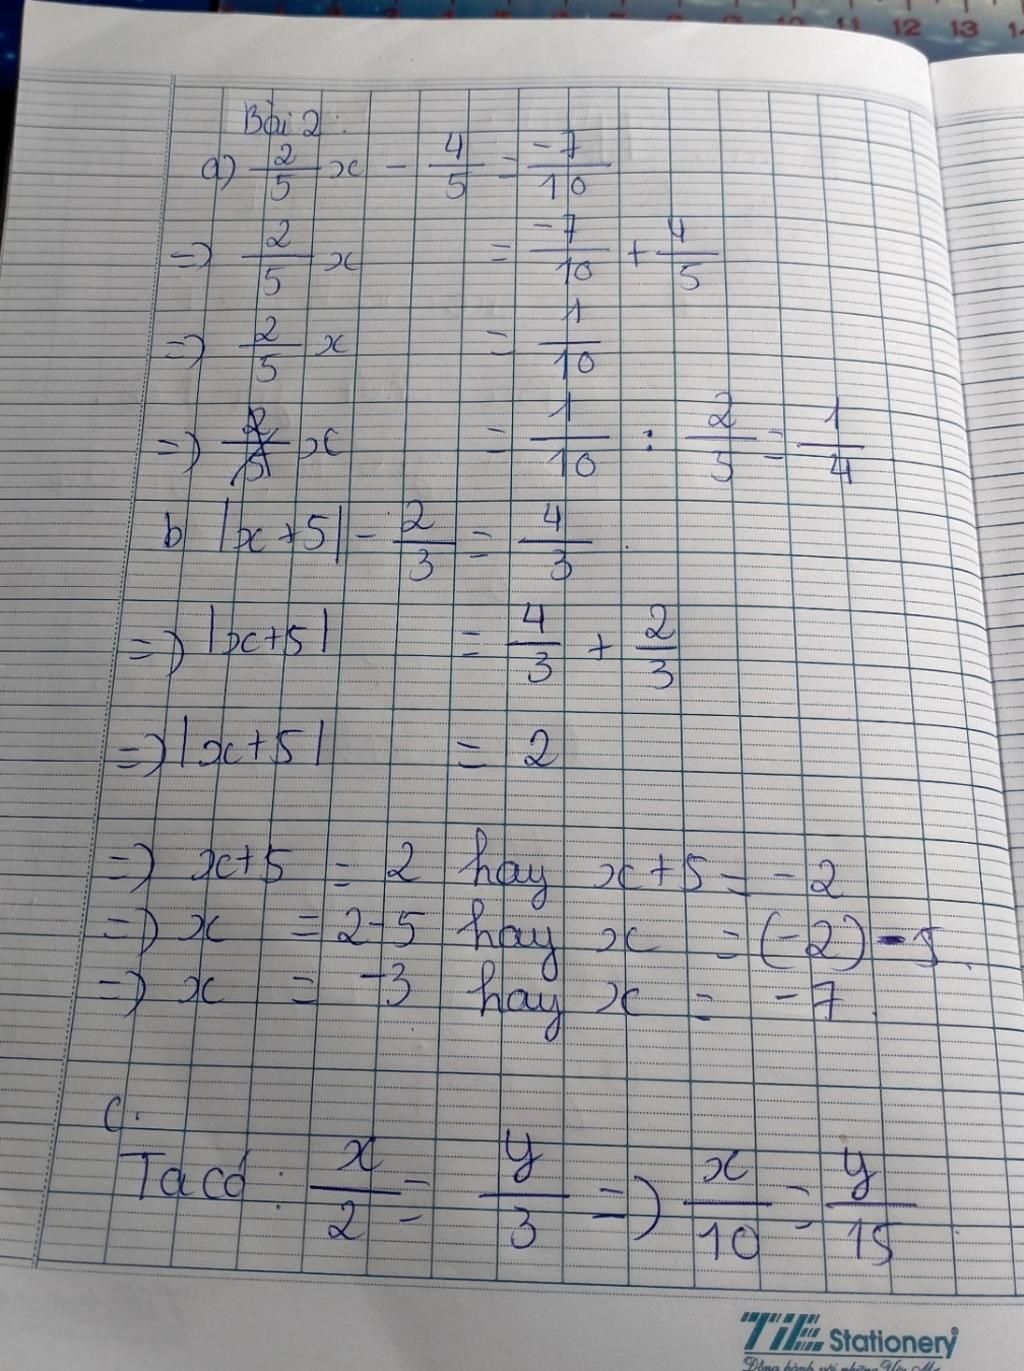 12 13
Bài 2:
a) 2/5 x - 4/5 = -7/10
=> 2/5 x = -7/10 + 4/5
=> 2/5 x = 1/10
=> x = 1/10 : 2/5 = 1/4
b |x+5| - 2/3 = 4/3
=> |x+5| = 4/3 + 2/3
=> |x+5| = 2
=> x+5 = 2 hay x+5 = -2
=> x = 2-5 hay x = (-2) - 5
=> x = -3 hay x = -7
c.
Ta có: x/2 = y/3 => x/10 = y/15
TiE Stationery®